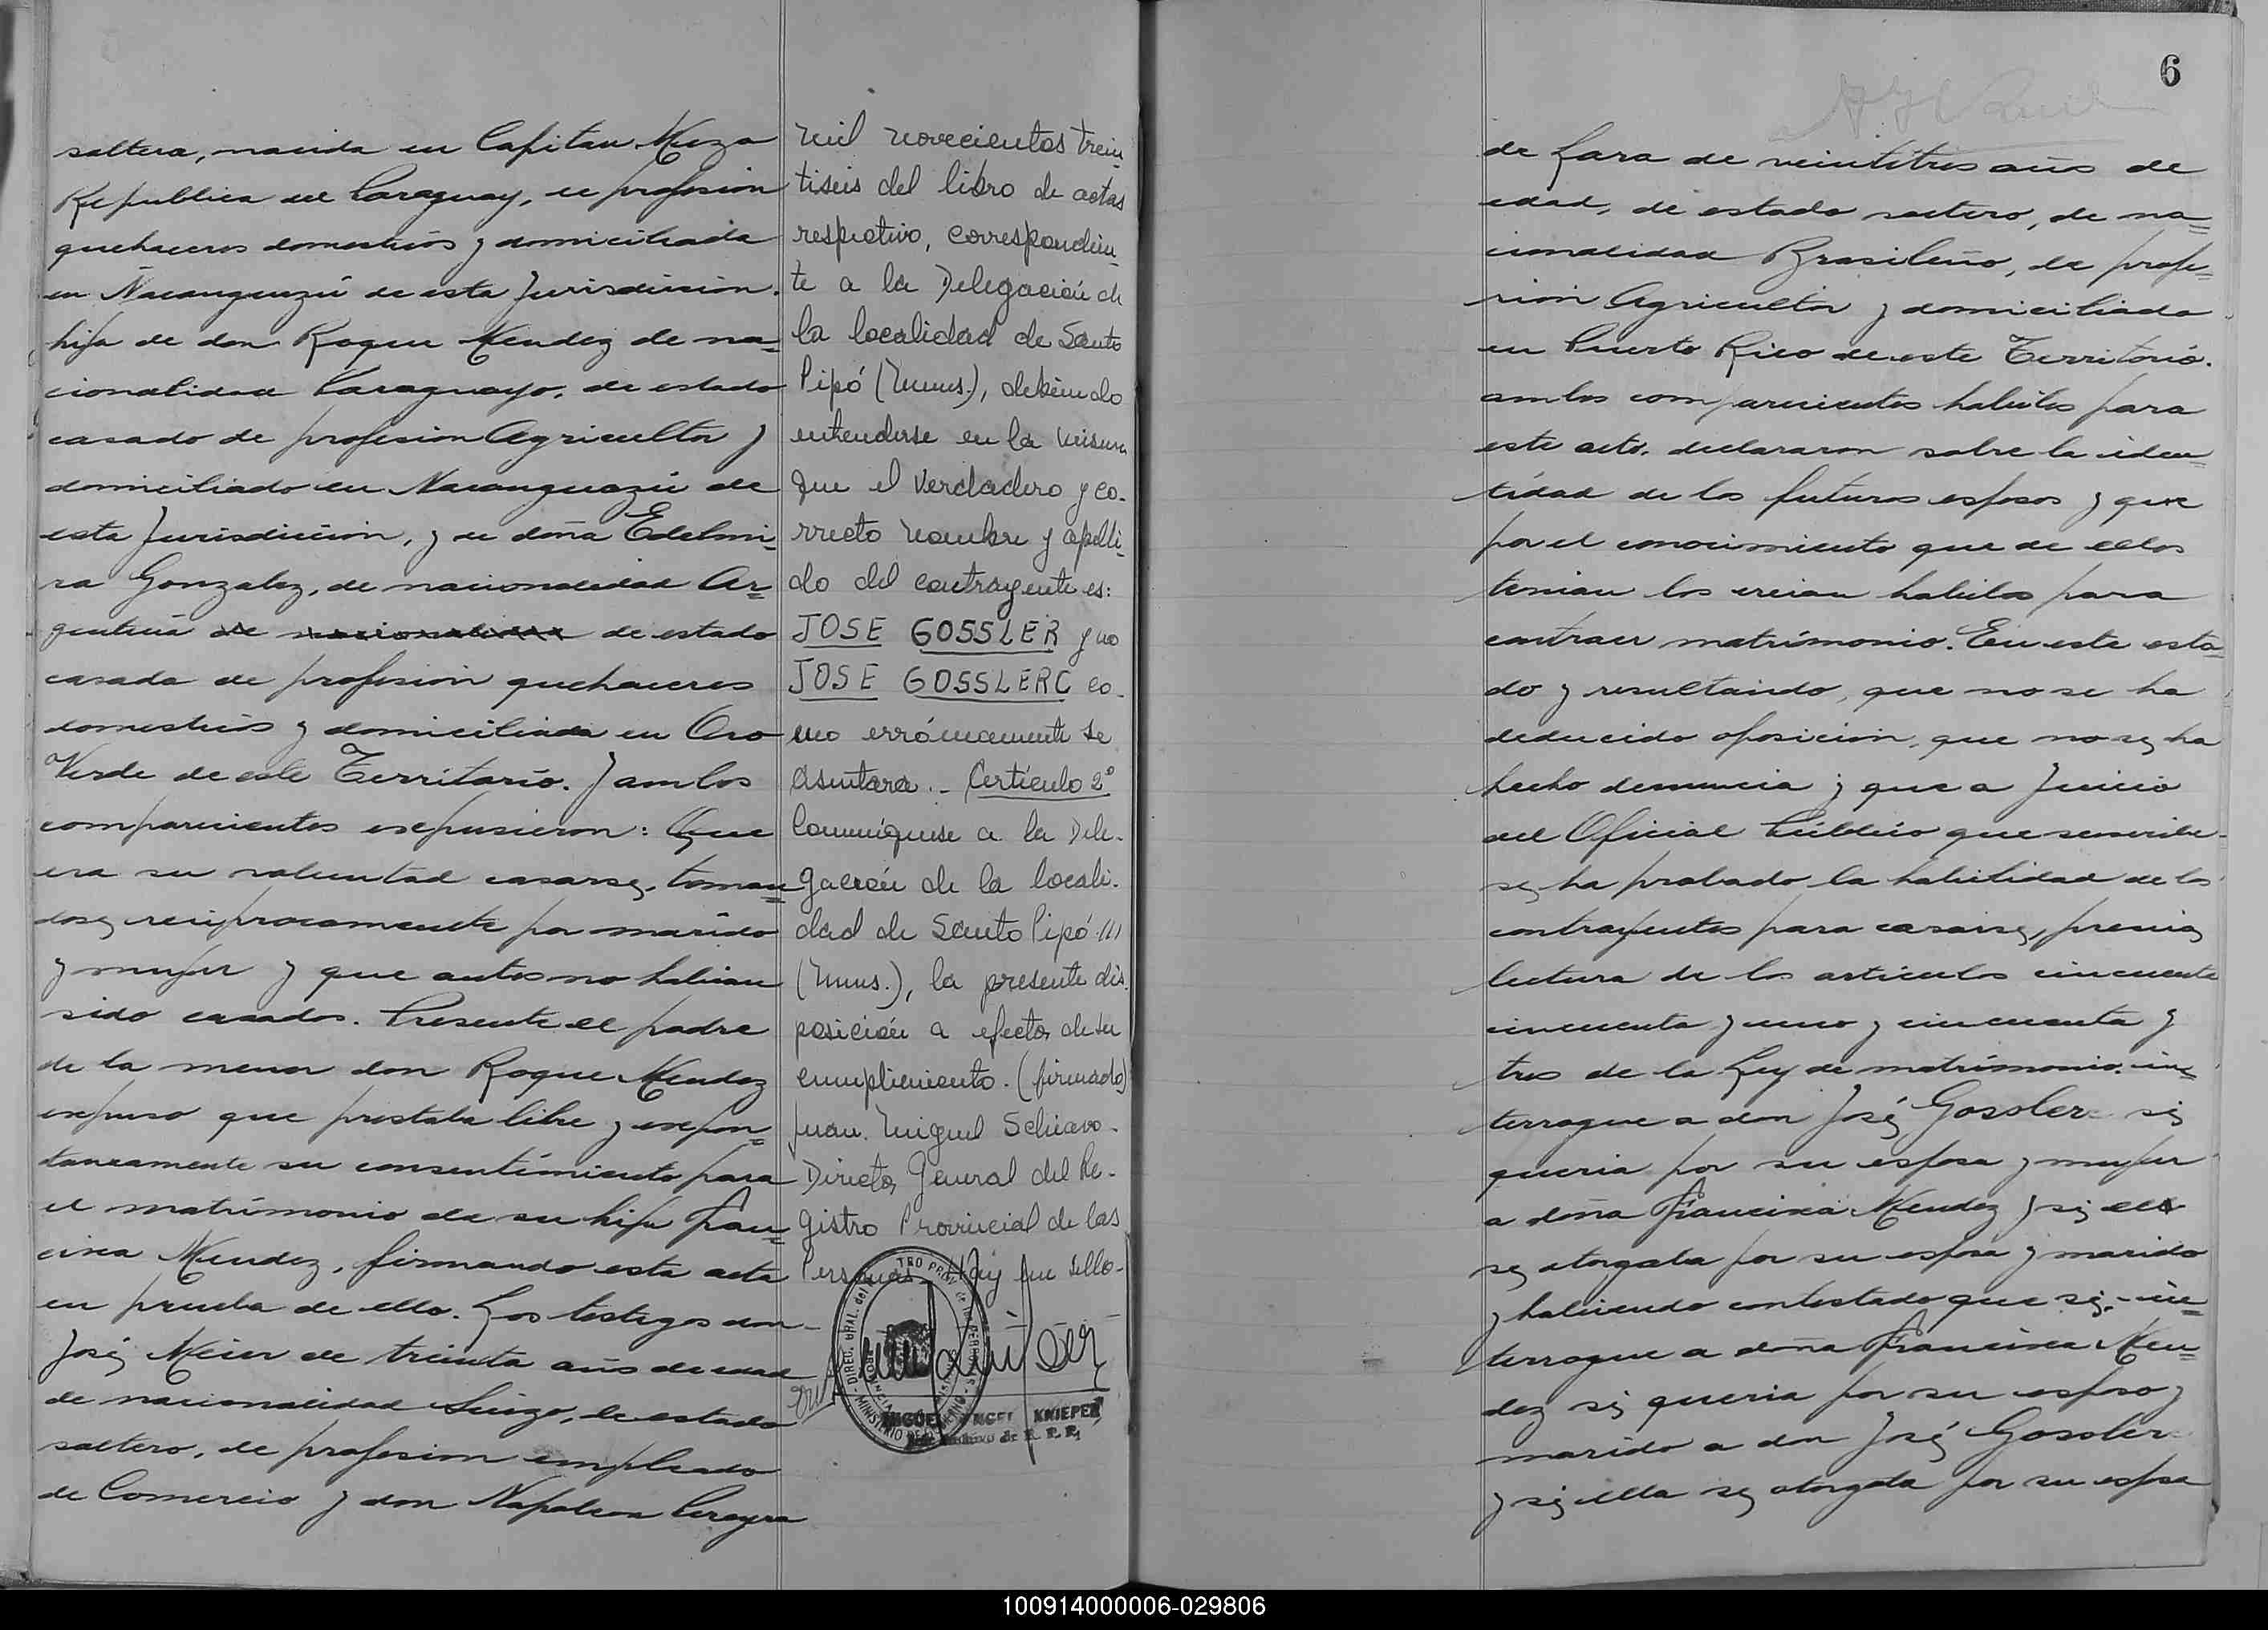 soltera, nacida en Capitan Meza
Republica del Paraguay, de profesion
quehaceres domesticos y domiciliada
en Ñacanguazú de esta Jurisdicion.
hija de don Roque Mendez de na=
cionalidad Paraguayo, de estado
casado de profesion Agricultor y
domiciliado en Nacanguazú de
esta Jurisdicion, y de doña Edelmi=
ra Gonzalez, de nacionalidad Ar=
gentina de nacionalidad de estado
casada de profesion quehaceres
domesticos y domiciliada en Oro
Verde de este Territorio. Y ambos
comparecientes expusieron: Que
era su voluntad casarse, toman=
dose reciprocamente por marido
y mujer y que antes no habian
sido casados. Presente el padre
de la menor don Roque Mendez
expuso que prestaba libre y expon=
taneamente su consentimiento para
el matrimonio de su hija Fran=
cisca Mendez, firmando esta acta
en prueba de ello. Los testigos don
José Meier de treinta años de edad
de nacionalidad Suizo, de estado
soltero, de profesion empleado
de Comercio y don Napoleon Pereyra
mil novecientos trein
tiseis del libro de actas
respectivo, correspondien
te a la Delegación de
la localidad de Santo
Pipó (Mnes.), debiendo
entenderse en la misma
que el verdadero y co-
rrecto nombre y apelli-
do del contrayente es:
JOSE GOSSLER y no
JOSE GOSSLERC co-
mo erróneamente se
asentara.- Artículo 2º
Comuníquese a la Dele-
gación de la locali-
dad de Santo Pipó
(Mnes.), la presente dis-
posición a efectos de su
cumplimiento. (firmado)
Juan Miguel Schiavo-
Director General del Re-
gistro Provincial de las
Personas - Hay un sello-
MIGUEL ANGEL KNIEPER
6
de Lara de veintitres años de
edad, de estado soltero, de na=
cionalidad Brasileño, de profe=
sion Agricultor y domiciliado
en Puerto Rico de este Territorio.
ambos comparecientes habiles para
este acto. declararon sobre la iden=
tidad de los futuros esposos y que
por el conocimiento que de ellos
tenian los creian habiles para
contraer matrimonio. En este esta=
do y resultando, que no se ha
deducido oposicion, que no se ha
hecho denuncia y que a Juicio
del Oficial Público que suscribe
se ha probado la habilidad de los
contrayentes para casarse, previa
lectura de los articulos cincuenta
cincuenta y uno y cincuenta y
tres de la Ley de matrimonio. in=
terrogue a don José Gossler si
queria por su esposa y mujer
a doña Francisca Mendez y si el
se otorgaba por su esposo y marido
y habiendo contestado que si. in=
terrogue a doña Francisca Men=
dez si queria por su esposo y
marido a don José Gossler
y si ella se otorgaba por su esposa
100914000006-029806